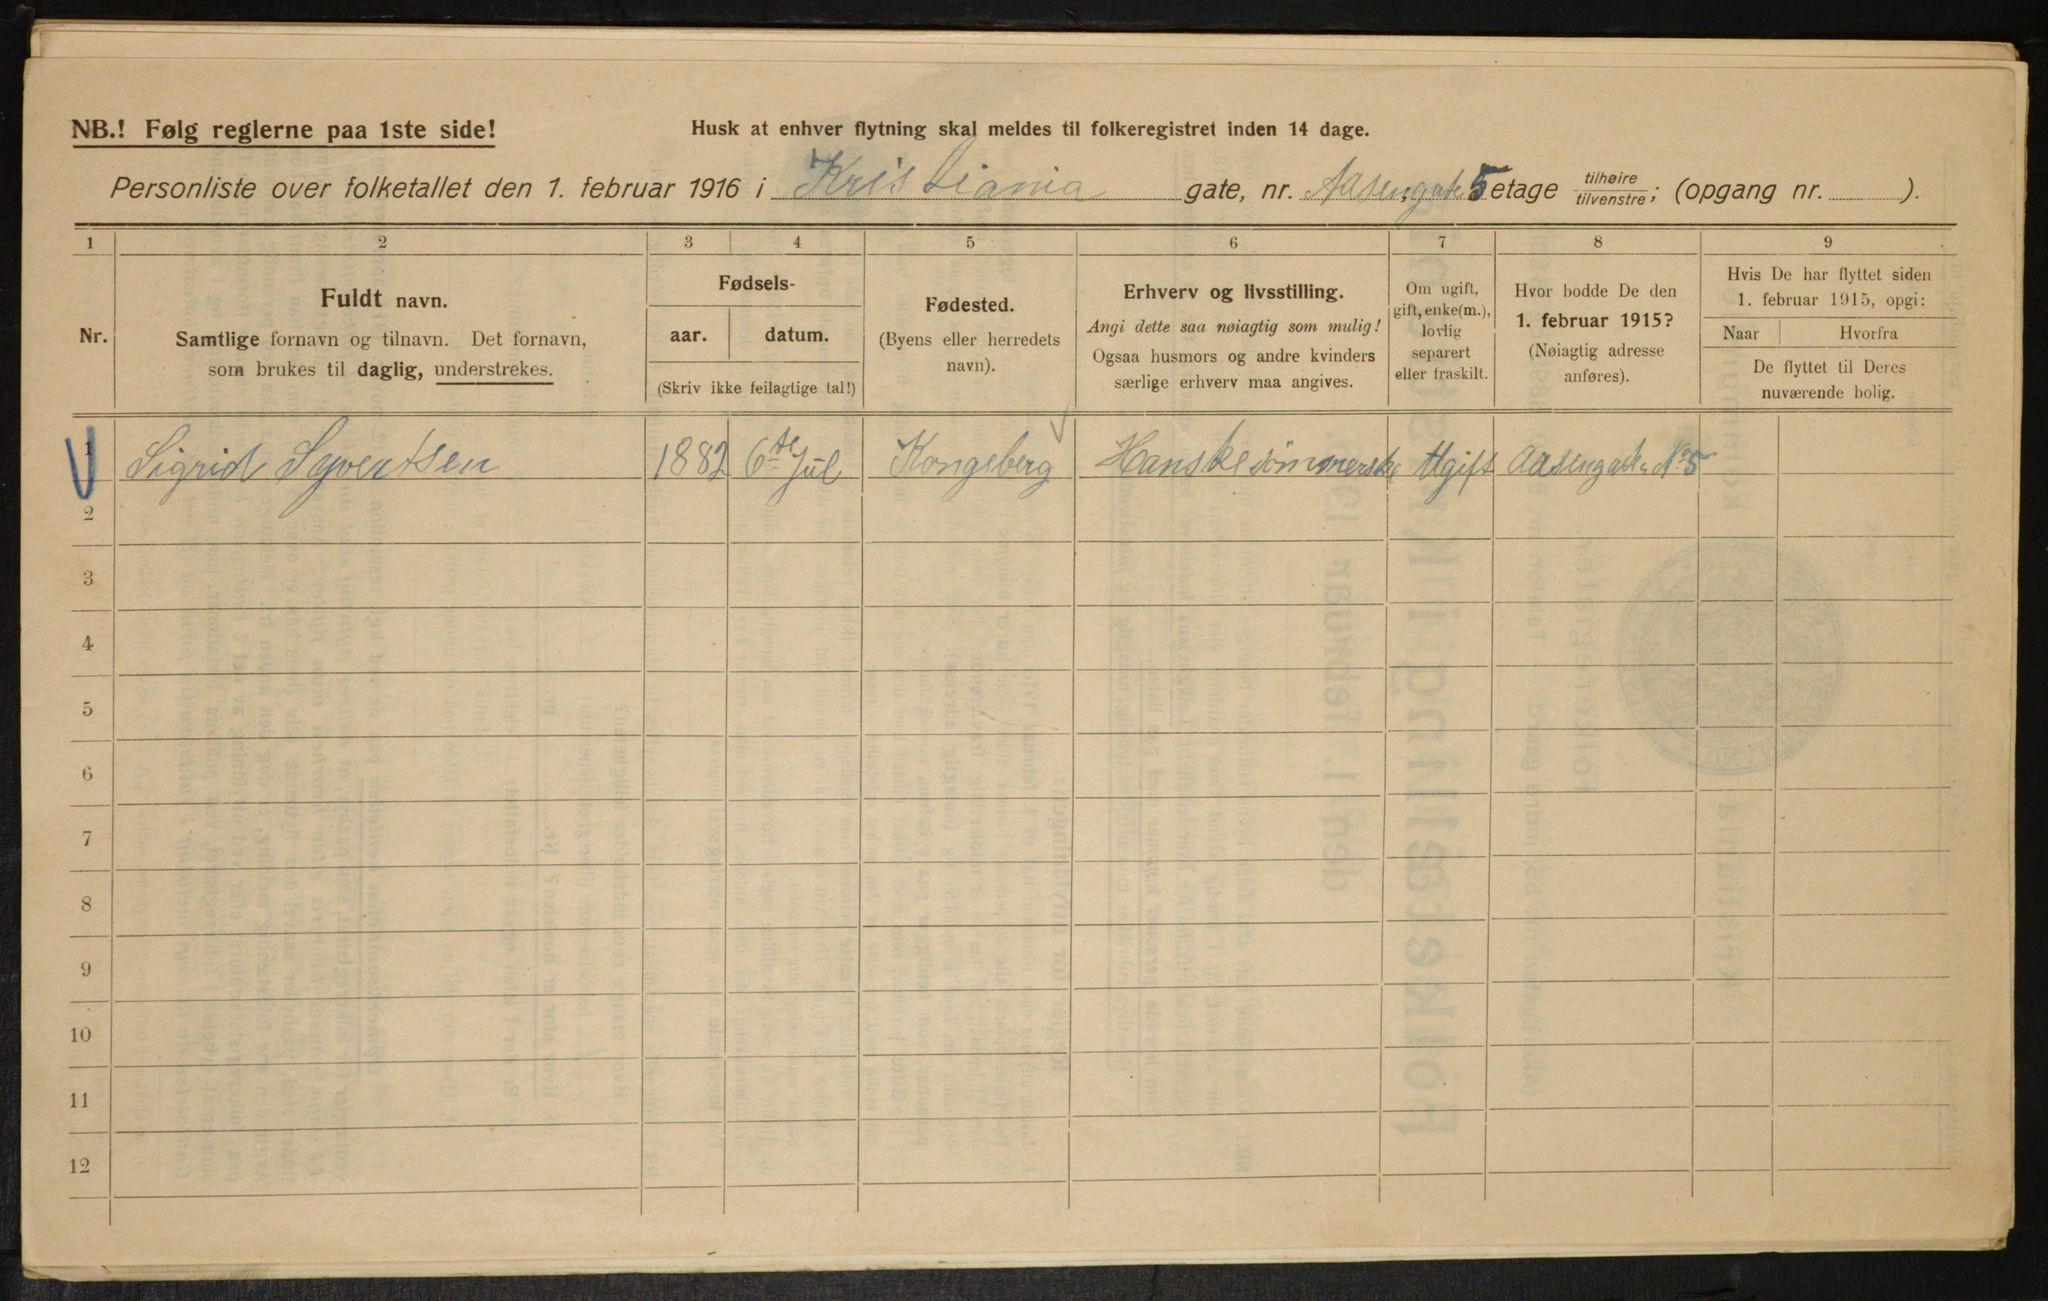 NB.! Følg reglerne paa 1ste side!
Husk at enhver flytning skal meldes til folkeregistret inden 14 dage.
Personliste over folketallet den 1. februar 1916 i Kristiania gate, nr. Aasengate 5 etage tilhøire tilvenstre; (opgang nr. ).
1 2 3 4 5 6 7 8 9
Nr.
Fuldt navn.
Samtlige fornavn og tilnavn. Det fornavn,
som brukes til daglig, understrekes.
Fødsels-
aar. datum.
(Skriv ikke feilagtige tal!)
Fødested.
(Byens eller herredets
navn).
Erhverv og livsstilling.
Angi dette saa nøiagtig som mulig!
Ogsaa husmors og andre kvinders
særlige erhverv maa angives.
Om ugift,
gift, enke(m.),
lovlig
separert
eller fraskilt.
Hvor bodde De den
1. februar 1915?
(Nøiagtig adresse
anføres).
Hvis De har flyttet siden
1. februar 1915, opgi:
Naar Hvorfra
De flyttet til Deres
nuværende bolig.
1 Sigrid Syvertsen 1882 6te Jul Kongsberg Hanskesømmerske Ugift Aasengate No 5
2
3
4
5
6
7
8
9
10
11
12